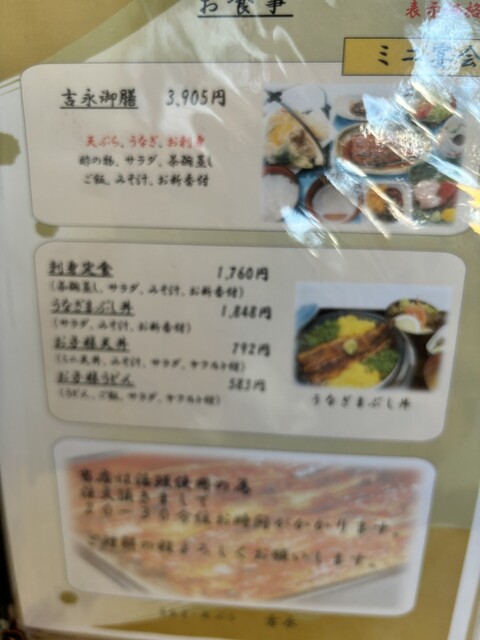 お食事
表示価格
ミニ宴会
吉永御膳 3,905円
天ぷら、うなぎ、お刺身
酢の物、サラダ、茶碗蒸し
ご飯、みそ汁、お新香付
刺身定食 1,760円
(茶碗蒸し、サラダ、みそ汁、お新香付)
うなぎまぶし丼 1,848円
(サラダ、みそ汁、お新香付)
お子様天丼 792円
(ミニ天丼、みそ汁、サラダ、ヤクルト付)
お子様うどん 583円
(うどん、ご飯、サラダ、ヤクルト付)
うなぎまぶし丼
当店は
注文頂きまして
20−30分位お時間がかかります。
ご理解の程よろしくお願いします。
吉永